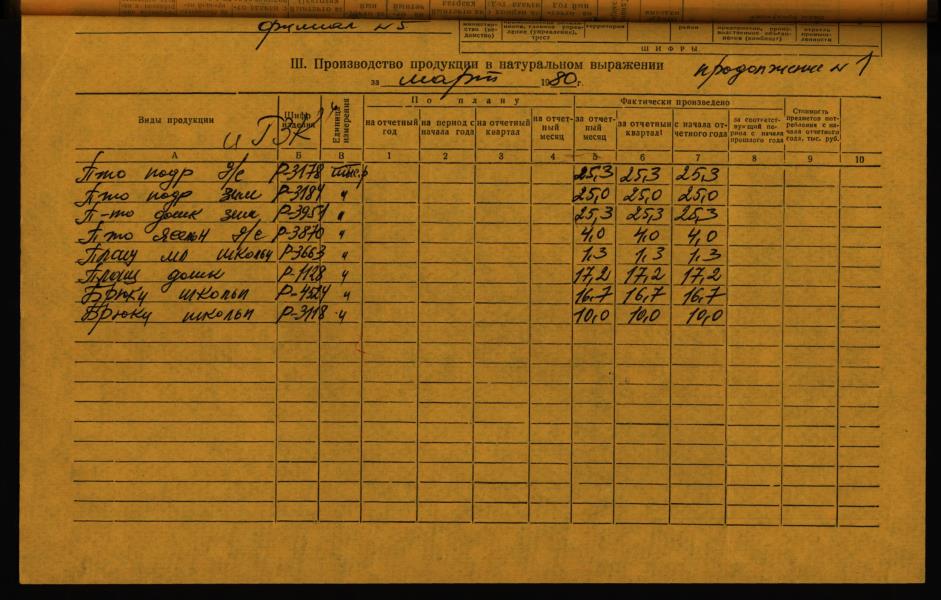 филиал №5
министерство (ведомство)
территория
район
ШИФРЫ
III. Производство продукции в натуральном выражении
продолжение №1
за март 1980г.
Виды продукции
Шифр изделия
Единица измерения
По плану
Фактически произведено
на отчетный год
на период с начала года
на отчетный квартал
на отчетный месяц
за отчетный месяц
за отчетный квартал
с начала отчетного года
за соответствующий период с начала прошлого года
Стоимость предметов потребления с начала отчетного года, тыс. руб.
и ГЗК
А Б В 1 2 3 4 5 6 7 8 9 10
П-то подр Р-3178 25,3 25,3 25,3
П-то подр зим Р-3184 " 25,0 25,0 25,0
П-то дошк зим, Р-3954 " 25,3 25,3 25,3
П-то ясельн Р-3870 " 4,0 4,0 4,0
Плащ мл школьн Р-3663 " 1,3 1,3 1,3
Плащ дошк Р-1128 " 17,2 17,2 17,2
Брюки школьн Р-4524 " 16,7 16,7 16,7
Брюки школьн Р-3118 " 10,0 10,0 10,0